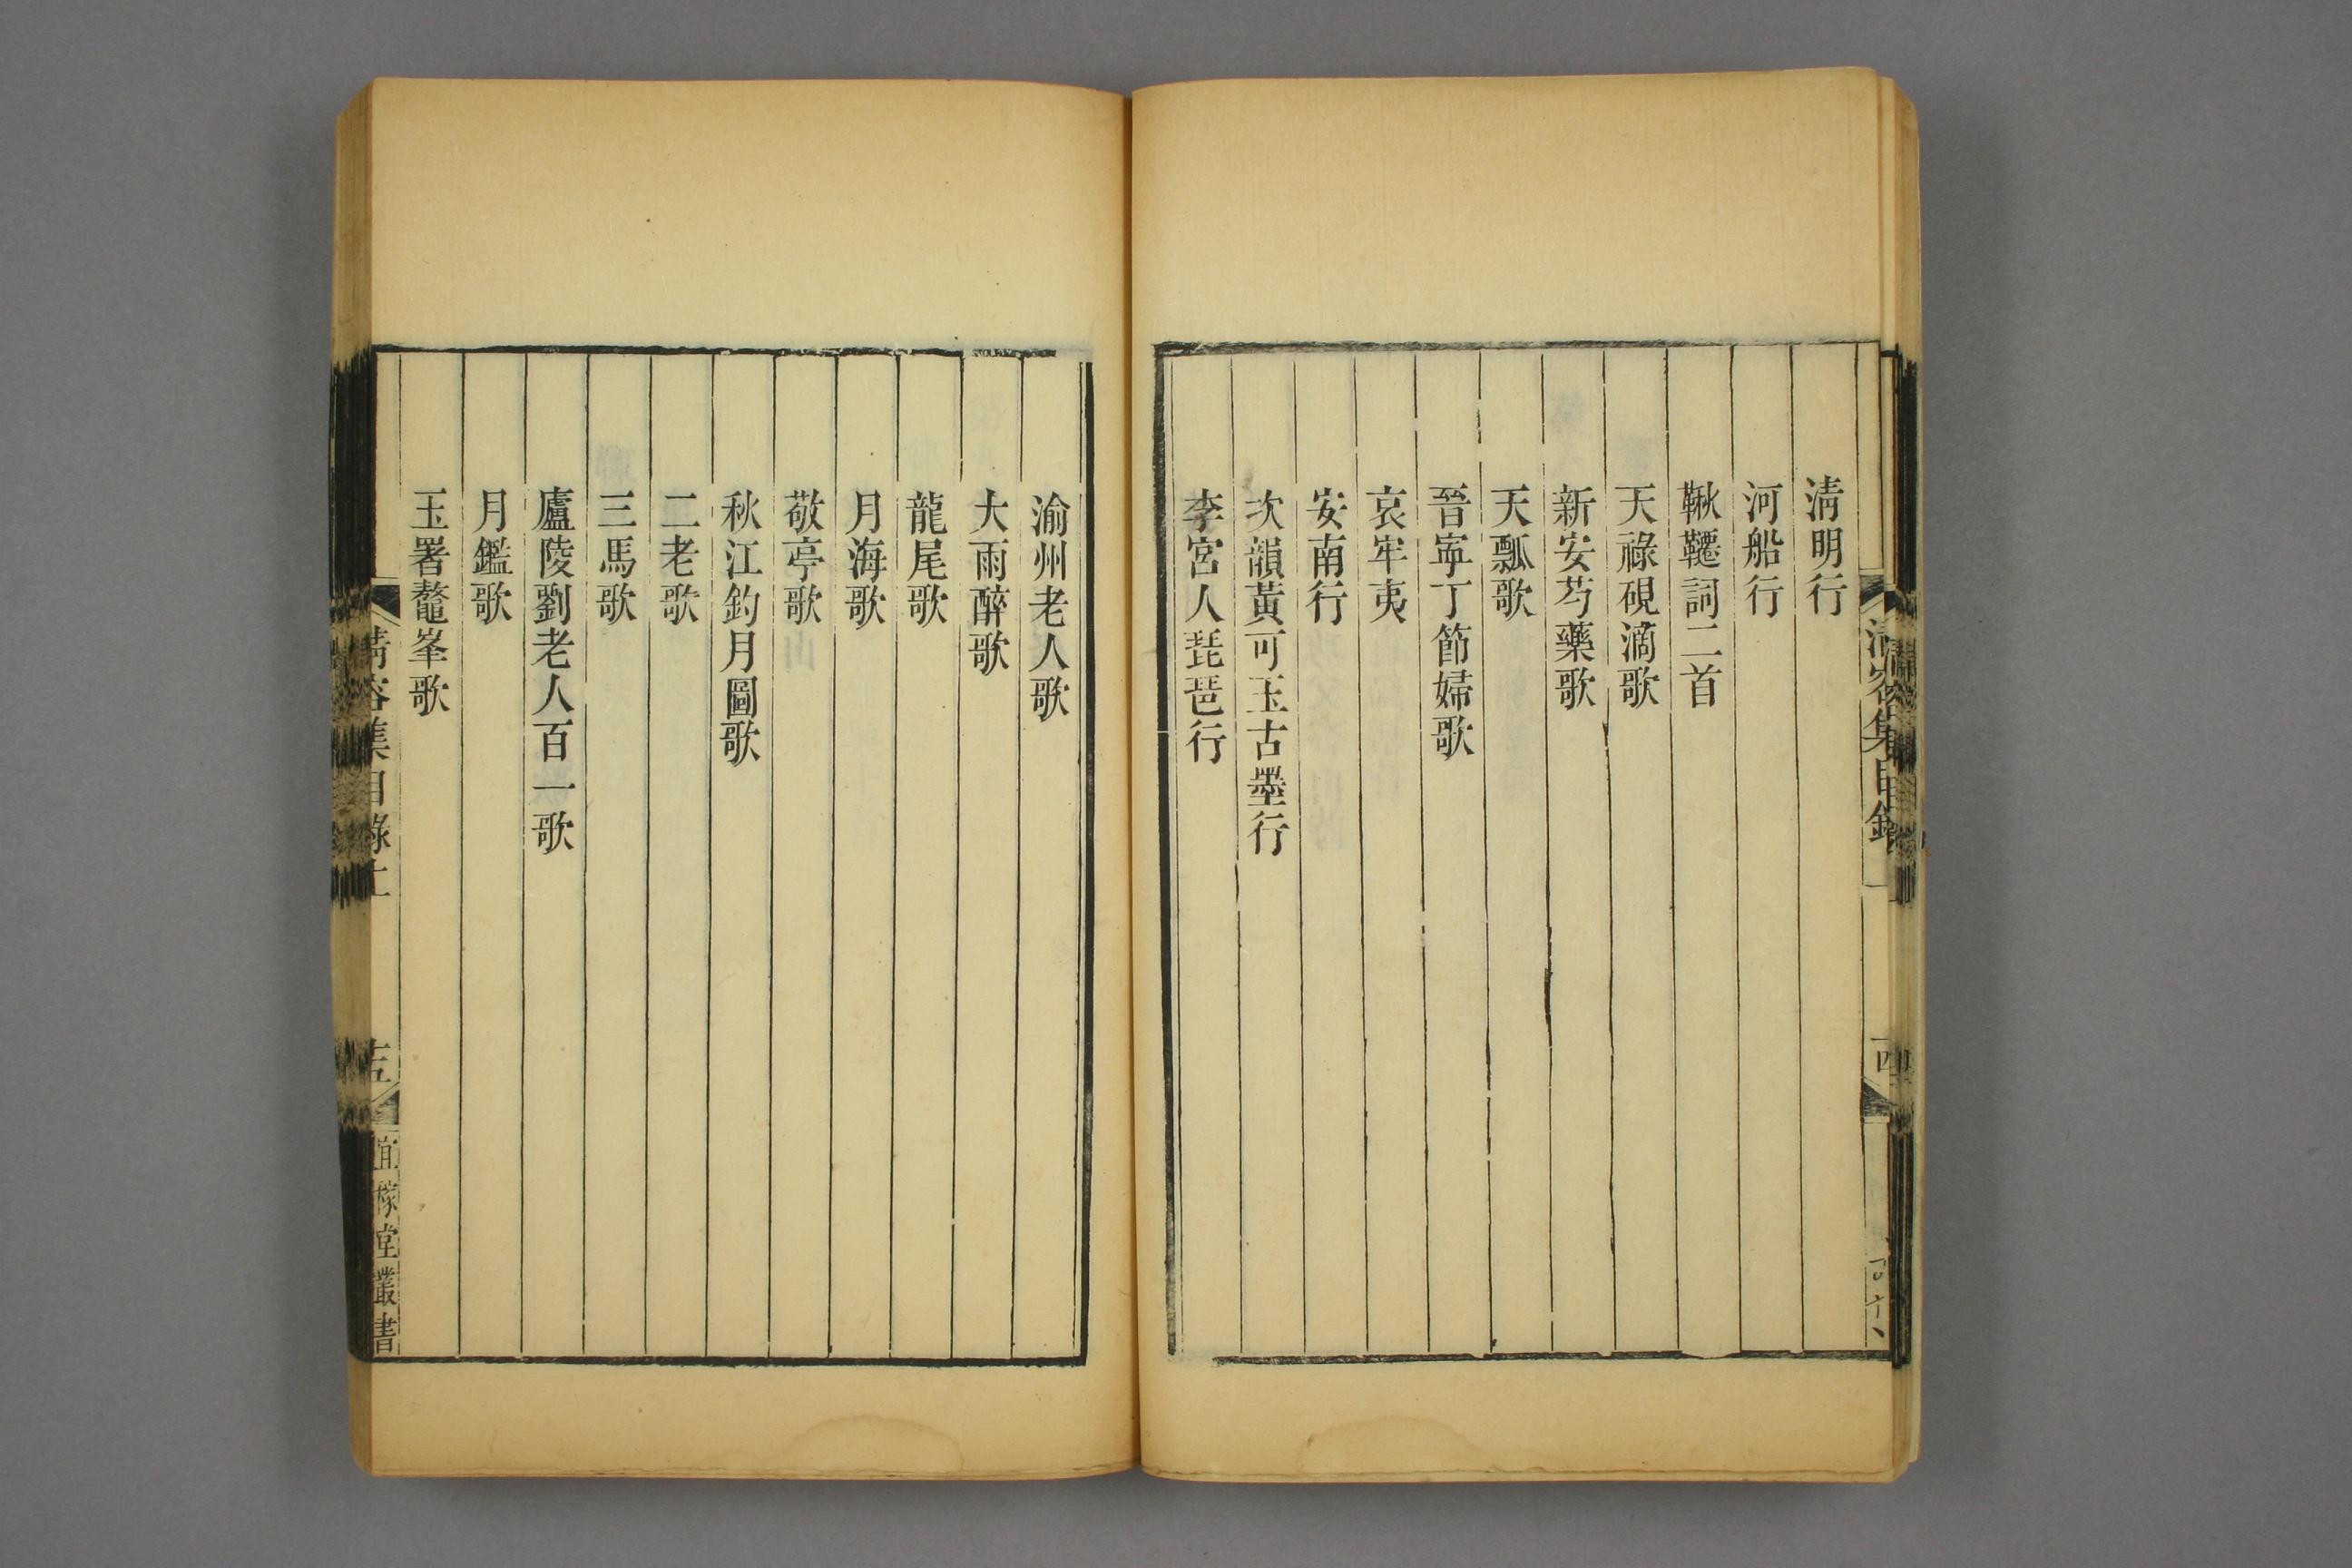 清明行
河船行
鞦韆詞二首
天祿硯滴歌
新安芍藥歌
天瓢歌
晉寧丁節婦歌
哀牢夷
安南行
次韻黃可玉古墨行
李宮人琵琶行
渝州老人歌
大雨醉歌
龍尾歌
月海歌
敬亭歌
秋江釣月圖歌
二老歌
三馬歌
廬陵劉老人百一歌
月鑑歌
玉署鼇峯歌
清容集目錄上
宜稼堂叢書